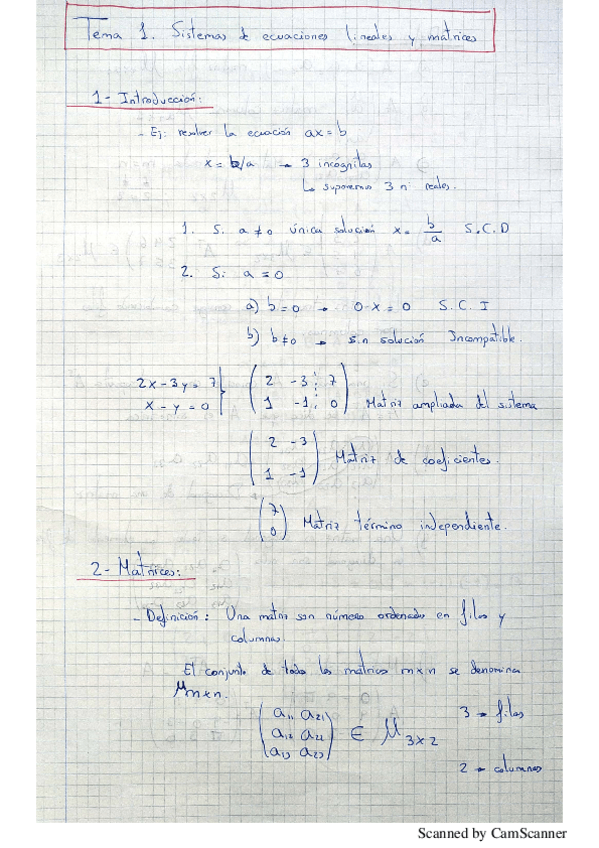 Tema 1. Sistemas de ecuaciones lineales y matrices
1- Introducción:
- Ej: resolver la ecuación ax = b
x = b/a → 3 incógnitas
↳ suponemos 3 nº reales.
1. Si a ≠ 0 única solución x = b/a S.C.D
2. Si a = 0
a) b = 0 → 0·x = 0 S.C.I
b) b ≠ 0 → sin solución Incompatible.
2x - 3y = 7 } ( 2 -3 ⋮ 7 )
x - y = 0 } ( 1 -1 ⋮ 0 ) Matriz ampliada del sistema
( 2 -3 )
( 1 -1 ) Matriz de coeficientes.
( 7 )
( 0 ) Matriz término independiente.
2- Matrices:
- Definición: Una matriz son número ordenado en filas y
columnas.
El conjunto de todas las matrices m×n se denomina
M m×n.
( a11 a21 )
( a12 a22 ) ∈ M 3×2
( a13 a23 )
3 → filas
2 → columnas
Scanned by CamScanner